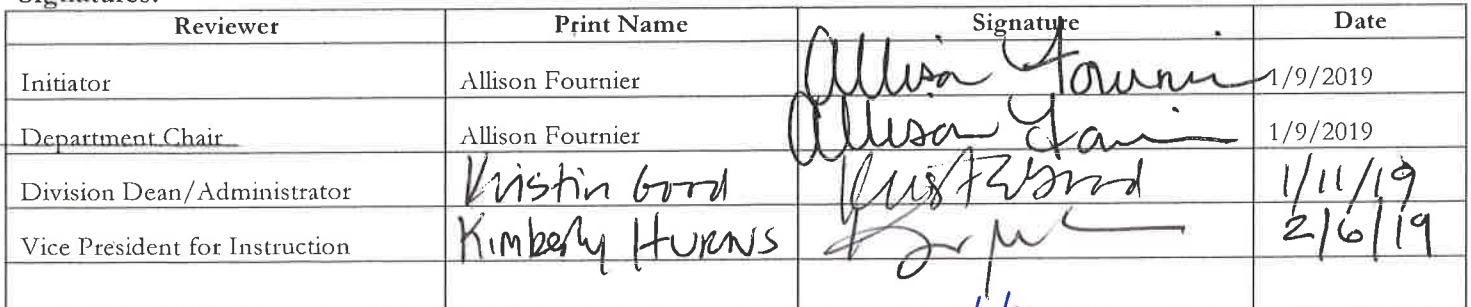 Signatures:
Reviewer Print Name Signature Date
Initiator Allison Fournier Allison Fournier 1/9/2019
Department Chair Allison Fournier Allison Fournier 1/9/2019
Division Dean/Administrator Kristin Good Kristin Good 1/11/19
Vice President for Instruction Kimberly Hurns 2/6/19